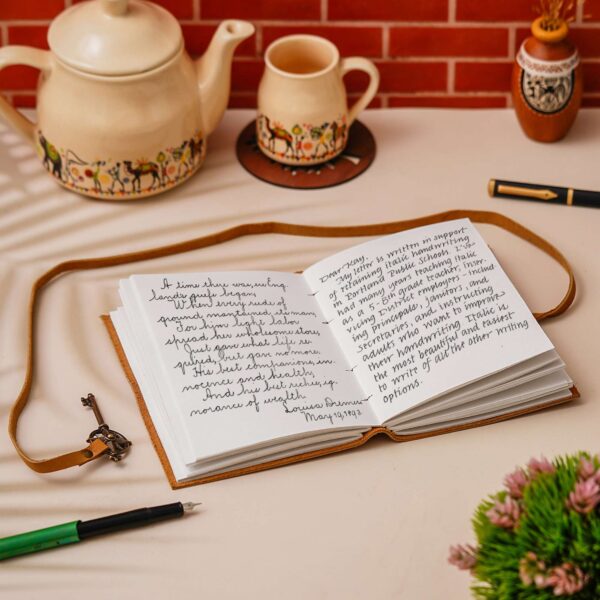 A time there was, ere Eng
lands griefs began,
When every rood of
ground maintained its man;
For him light labor
spread her wholesome store,
Just gave what life re
quired, but gave no more.
His best companions, in
nocence and health;
And his best riches, ig
norance of wealth.
Louisa
May 19, 1893
Dear Kay,
My letter is written in support
of retaining italic handwriting
in Portland Public Schools. I've
had many years teaching italic
as a 5-8th grade teacher, inser-
vicing District employees - includ
ing principals, janitors, and
secretaries, and instructing
adults who want to improve
their handwriting. Italic is
the most beautiful and easiest
to write of all the other writing
options.